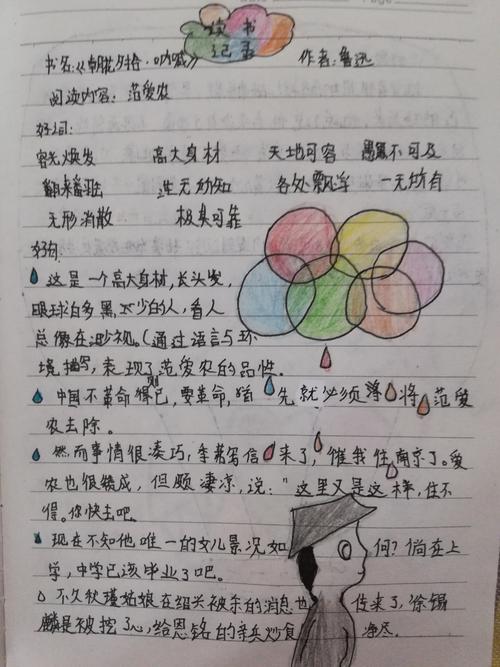 读书
记录
书名:《朝花夕拾·呐喊》 作者:鲁迅
阅读内容:范爱农
好词:
容光焕发 高大身材 天地可容 愚不可及
翻来 一无所知 各处飘浮 一无所有
无形消散 极其可靠
好句:
这是一个高大身材,长头发,
眼球白多黑少的人,看人
总像在渺视。(通过语言与环
境描写,表现了范爱农的品性。
中国不革命则已,要革命,首先就必须将范爱
农去除。
然而事情很凑巧,季茀写信来了,催我往南京了。爱
农也很赞成,但颇凄凉,说:"这里又是这样,住不
得。你快去吧。
现在不知他唯一的女儿景况如何?倘在上
学,中学已该毕业了吧。
不久秋瑾姑娘在绍兴被杀的消息也传来了,徐锡
麟是被挖了心,给恩铭的亲兵炒食净尽。